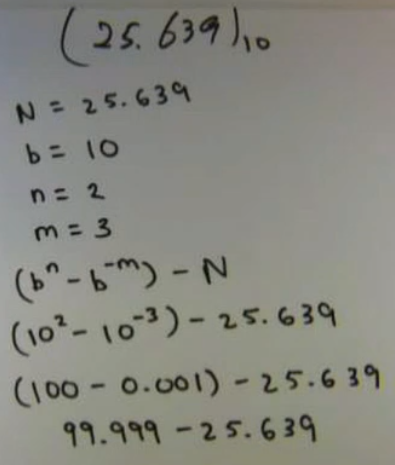 (25.639)₁₀
N = 25.639
b = 10
n = 2
m = 3
(bⁿ - b⁻ᵐ) - N
(10² - 10⁻³) - 25.639
(100 - 0.001) - 25.639
99.999 - 25.639